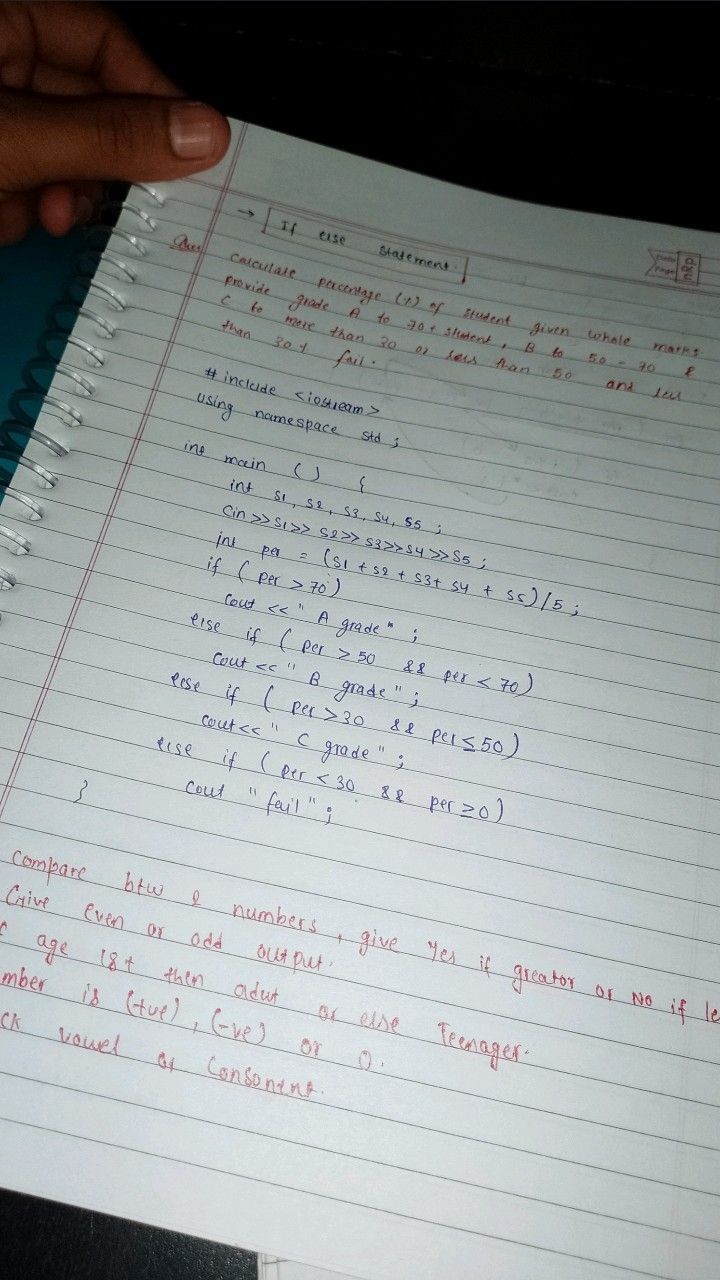 → If else statement.
Ques Calculate percentage (%) of student given whole marks
provide grade A to 70+ student, B to 50-70 &
C to more than 30 or less than 50 and less
than 30% fail.
# include <iostream>
using namespace std ;
int main () {
int s1, s2, s3, s4, s5 ;
Cin>>s1>> s2>> s3>>s4>>s5 ;
int per = (s1 + s2 + s3+ s4 + s5)/5 ;
if ( per > 70 )
cout << " A grade " ;
else if ( per > 50 && per < 70)
cout << " B grade" ;
else if ( per>30 && per≤50)
cout<< " C grade" ;
else if ( per < 30 && per≥0)
cout "fail" ;
}
Compare btw 2 numbers, give Yes if greator or No if le
Give Even or odd output.
age 18+ then adut or else Teenager.
mber is (+ve), (-ve) or 0.
ck vowel or Consonent.